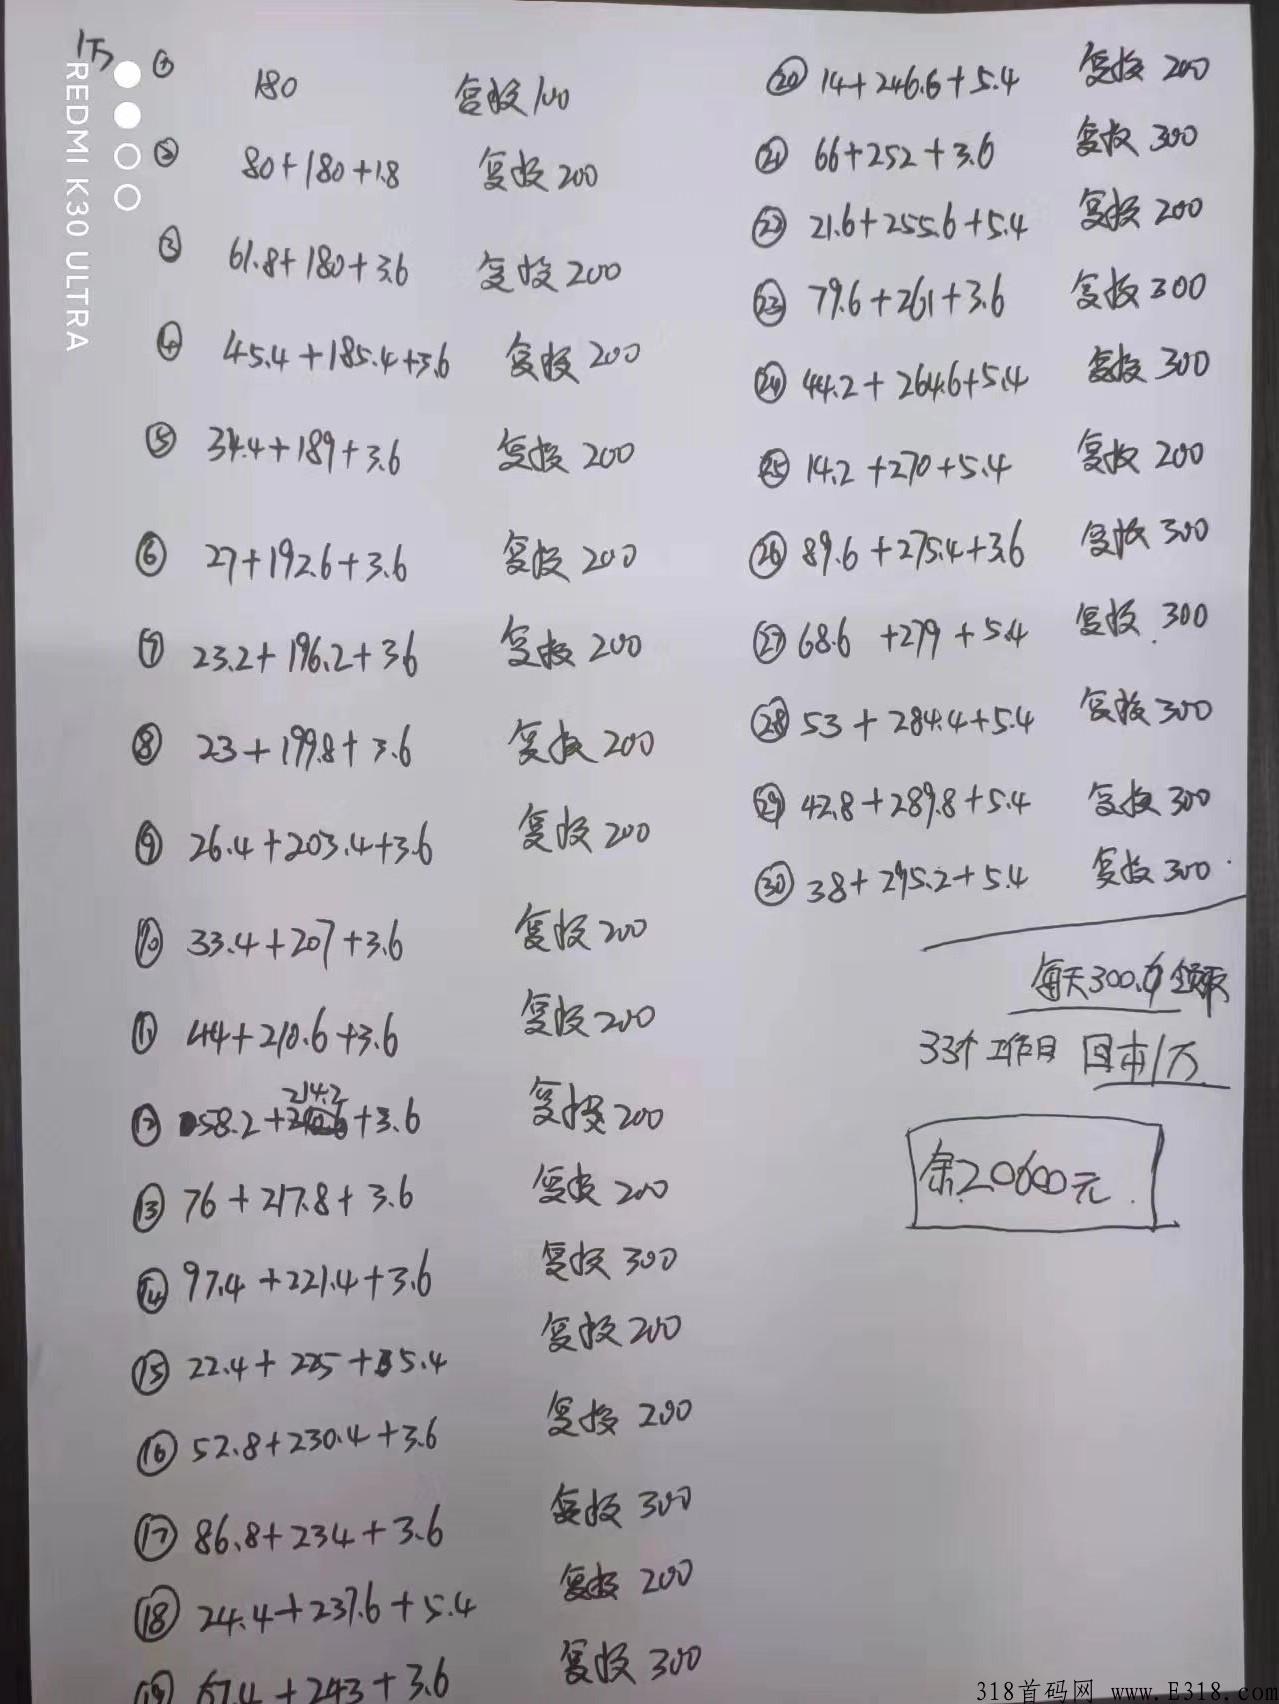 1万
① 180 复投100
② 80+180+1.8 复投200
③ 61.8+180+3.6 复投200
④ 45.4+185.4+3.6 复投200
⑤ 34.4+189+3.6 复投200
⑥ 27+192.6+3.6 复投200
⑦ 23.2+196.2+3.6 复投200
⑧ 23+199.8+3.6 复投200
⑨ 26.4+203.4+3.6 复投200
⑩ 33.4+207+3.6 复投200
⑪ 44+210.6+3.6 复投200
⑫ 58.2+214.2+3.6 复投200
⑬ 76+217.8+3.6 复投200
⑭ 97.4+221.4+3.6 复投300
⑮ 22.4+225+5.4 复投200
⑯ 52.8+230.4+3.6 复投200
⑰ 86.8+234+3.6 复投300
⑱ 24.4+237.6+5.4 复投200
⑲ 67.4+243+3.6 复投300
⑳ 14+246.6+5.4 复投200
㉑ 66+252+3.6 复投300
㉒ 21.6+255.6+5.4 复投200
㉓ 79.6+261+3.6 复投300
㉔ 44.2+264.6+5.4 复投300
㉕ 14.2+270+5.4 复投200
㉖ 89.6+275.4+3.6 复投300
㉗ 68.6+279+5.4 复投300
㉘ 53+284.4+5.4 复投300
㉙ 42.8+289.8+5.4 复投300
㉚ 38+295.2+5.4 复投300
每天300.6领取
33个工作日 回本1万
余20600元
REDMI K30 ULTRA
318首码网 www.E318.com